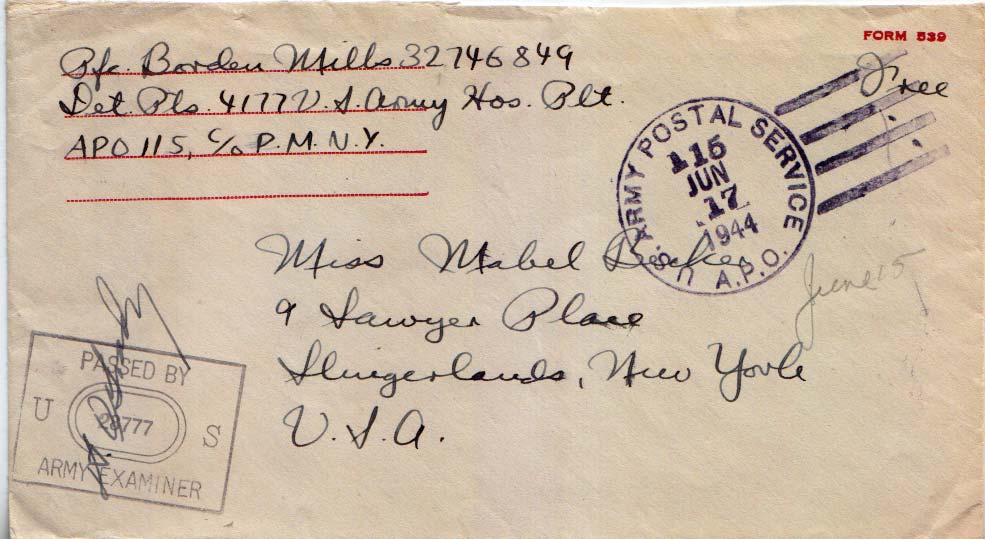 FORM 539
Pfc. Borden Mills 32746849
Det. Pts. 4177 U.S. Army Hos. Plt.
APO 115, c/o P.M. N.Y.
Free
U.S. ARMY POSTAL SERVICE A.P.O.
115
JUN
17
1944
Miss Mabel
9 Sawyer Place
Slingerlands, New York
U.S.A.
June 15
PASSED BY
U 28777 S
ARMY EXAMINER